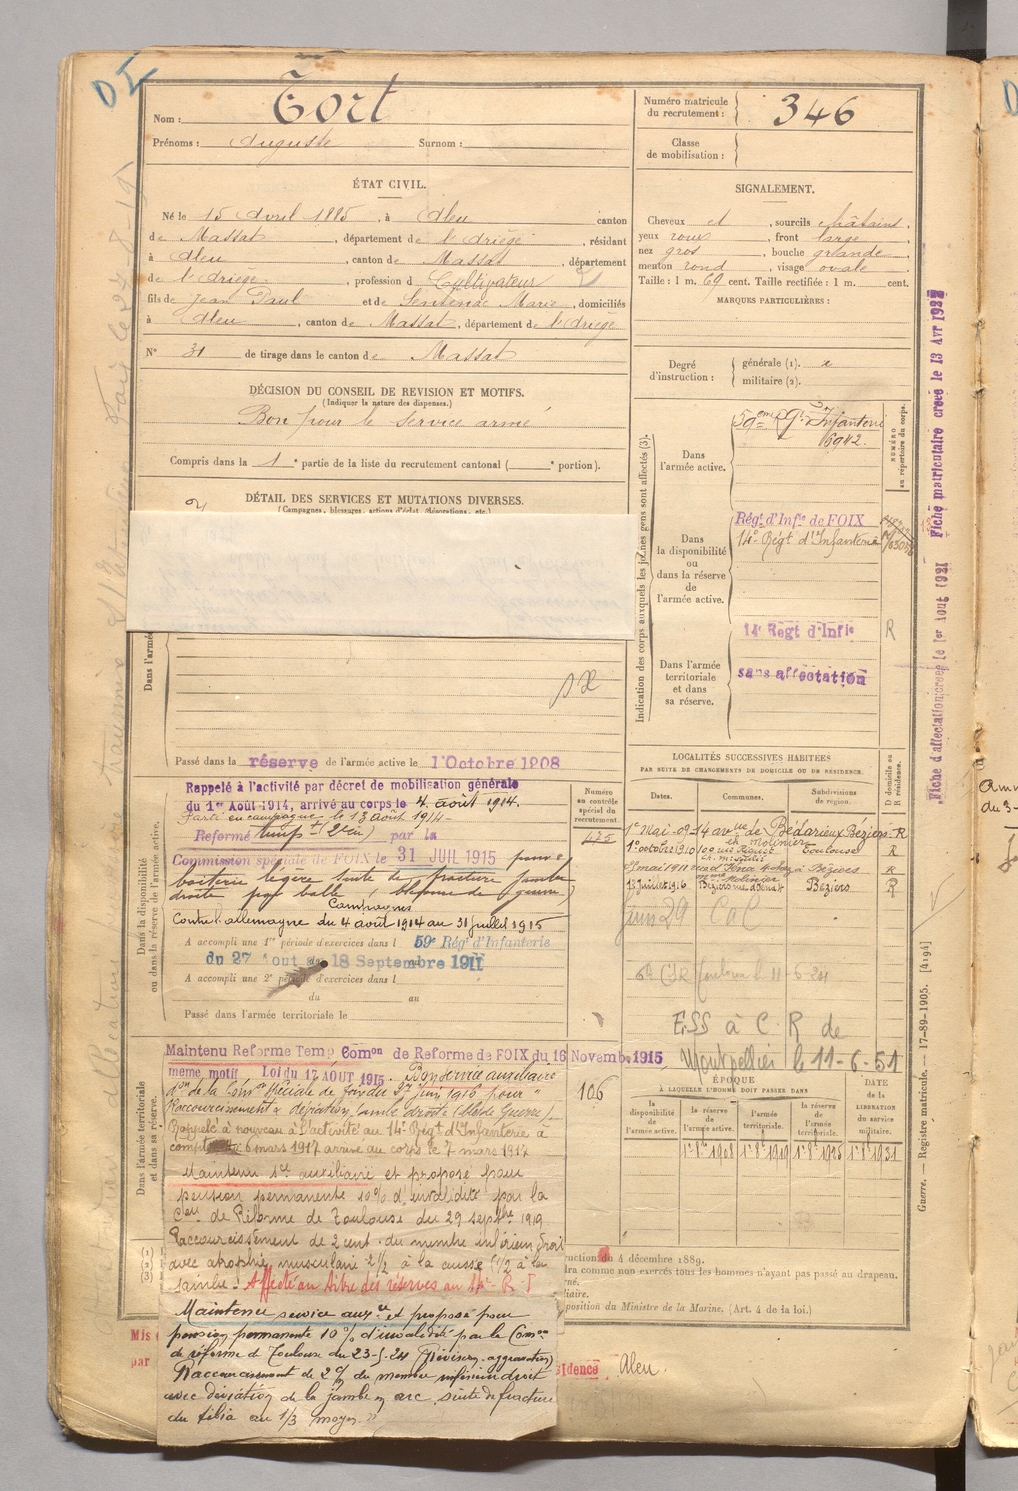 Nom : Tort
Prénoms : Auguste Surnom :
Numéro matricule du recrutement : 346
Classe de mobilisation :
ÉTAT CIVIL.
Né le 15 Avril 1885, à Aleu canton
de Massat, département de l'Ariège, résidant
à Aleu, canton de Massat, département
de l'Ariège, profession d Cultivateur
fils de Jean Paul et de Sentenac Marie, domiciliés
à Aleu, canton de Massat, département de l'Ariège
N° 31 de tirage dans le canton de Massat
SIGNALEMENT.
Cheveux et, sourcils châtains,
yeux roux, front large,
nez gros, bouche grande,
menton rond, visage ovale
Taille : 1 m. 69 cent. Taille rectifiée : 1 m. cent.
MARQUES PARTICULIÈRES :
Degré d'instruction : générale (1). 2
militaire (2).
DÉCISION DU CONSEIL DE REVISION ET MOTIFS.
(Indiquer la nature des dispenses.)
Bon pour le service armé
Compris dans la 1e partie de la liste du recrutement cantonal ( e portion).
DÉTAIL DES SERVICES ET MUTATIONS DIVERSES.
(Campagnes, blessures, actions d'éclat, décorations, etc.)
Indication des corps auxquels les jeunes gens sont affectés (3).
NUMÉRO au répertoire du corps.
Dans l'armée active.
59eme Rgt Infanterie
6942.
Dans la disponibilité ou dans la réserve de l'armée active.
Régt d'Infie de FOIX
14e Régt d'Infanterie
14e Regt d'Infie R
Dans l'armée territoriale et dans sa réserve.
sans affectation
Fiche d'affectation créée le 1er Aout 1921 Fiche matriculaire creeé le 13 Avr
Dans l'armée
Passé dans la réserve de l'armée active le 1 Octobre 1908
Dans la disponibilité ou dans la réserve de l'armée active.
Rappelé à l'activité par décret de mobilisation générale
du 1er Août 1914, arrivé au corps le 4 août 1914.
Parti en campagne le 13 août 1914
Réformé tempt (2e ) par la
Commission spéciale de FOIX le 31 JUIL 1915 pour
boiterie légère suite de fracture jambe
droite par balle (blessure de guerre)
Campagnes
Contre l'allemagne du 4 août 1914 au 31 juillet 1915
A accompli une 1re période d'exercices dans l 59e Régt d'Infanterie
du 27 Aout au 18 Septembre 1911
A accompli une 2e période d'exercices dans l
du au
Passé dans l'armée territoriale le
Numéro au contrôle spécial du recrutement
475
LOCALITÉS SUCCESSIVES HABITÉES
PAR SUITE DE CHANGEMENTS DE DOMICILE OU DE RÉSIDENCE.
Dates. Communes. Subdivisions de région. D domicile ou R résidence.
1er Mai-09 14 avue de Bédarieux Béziers R
1er octobre 1910 Toulouse R
8 mai 1911 Béziers R
13 Juillet 1916 Béziers Béziers R
juin 29 CaC
Toulouse le 11-6-24
ESS à C. R de
Montpellier le 11-6-51
ÉPOQUE
À LAQUELLE L'HOMME DOIT PASSER DANS
DATE de la LIBÉRATION du service militaire.
la disponibilité de l'armée active. la réserve de l'armée active. l'armée territoriale. la réserve de l'armée territoriale.
Dans l'armée territoriale et dans sa réserve.
Maintenu Reforme Temp Comon de Reforme de FOIX du 16 Novemb 1915
meme motif Loi du 17 AOUT 1915. Bon service auxiliaire
don de la Comon spéciale de foix du 27 juin 1916 pour
Raccourcissement & déviation jambe droite (blés. de guerre)
Rappelé à nouveau à l'activité au 14e Régt d'Infanterie à
compter 6 mars 1917 arrivé au corps le 7 mars 1917
106
Maintenu sce auxiliaire et proposé pour
pension permanente 10% d'invalidité par la
Con de Réforme de Toulouse du 29 septbre 1919
Raccourcissement de 2 cent. du membre inférieur droit
avec atrophie musculaire 2 1/2 à la cuisse (1/2 à la
jambe. Affecté au titre des réserves au
Maintenu service auxre et proposé pour
pension permanente 10% d'invalidité par la Comon
de réforme de Toulouse du 23-5-24 (Révision-aggravation)
Raccourcissement de 2 % du membre inférieur droit
avec déviation de la jambe en arc, suite de fracture
du tibia au 1/3 moyen
(1)
(2)
(3)
ruction du 4 décembre 1889.
dra comme non exercés tous les hommes n'ayant pas passé au drapeau.
position du Ministre de la Marine. (Art. 4 de la loi.)
Mis
par
sidence Aleu.
Guerre. — Registre matricule. — 17-89-1905. [4194]